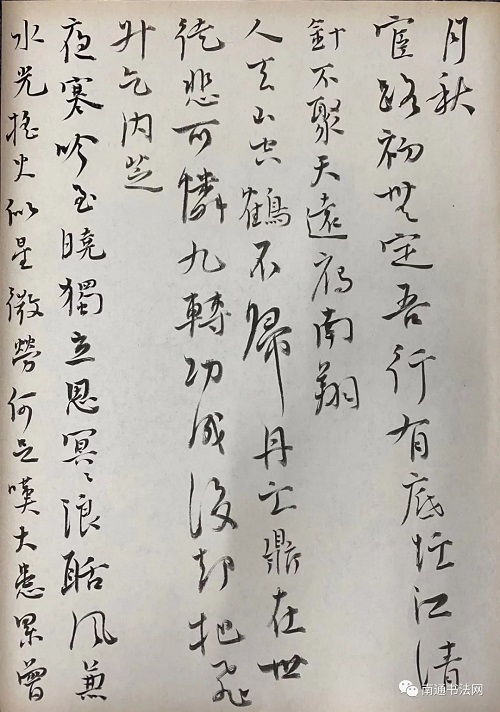 月秋
宦路初無定吾行有底忙江清
針不聚天遠雁南翔
人去山空鶴不歸丹亡鼎在世
徒悲可憐九轉功成後却把飛
升乞内芝
夜寒吟至曉獨立思冥〻浪聒風兼
水光摇火似星微勞何足嘆大患累曾
南通书法网